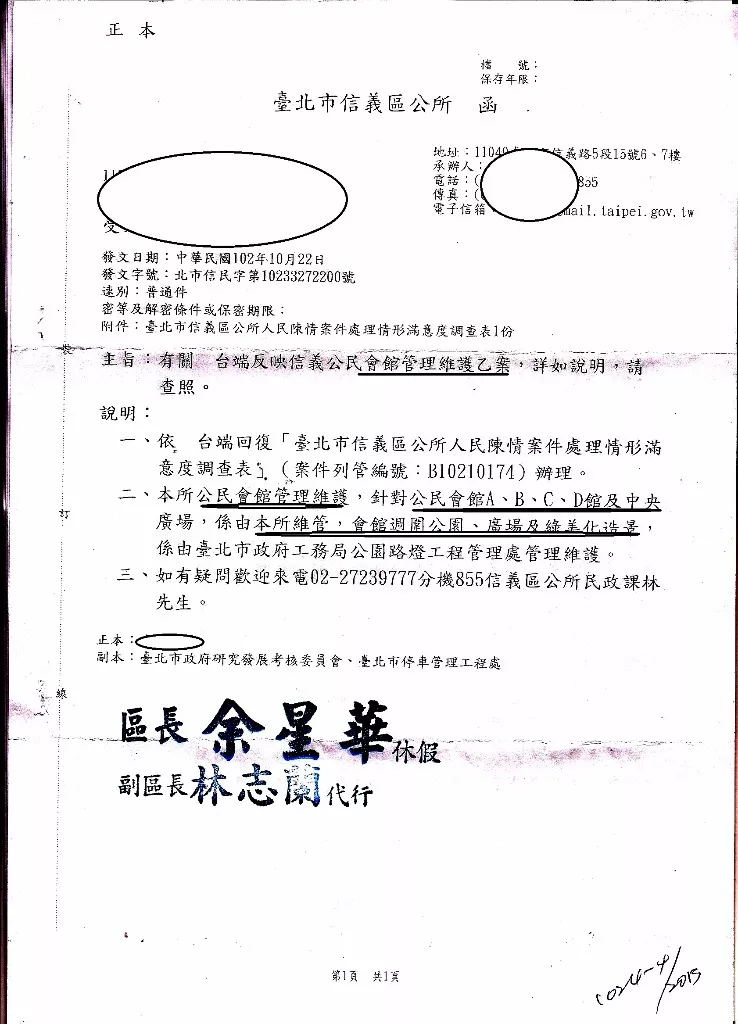 正本
檔 號：
保存年限：
臺北市信義區公所 函
地址：11049 信義路5段15號6、7樓
承辦人：
電話：( 855
傳真：(
電子信箱 mail.taipei.gov.tw
11
受
發文日期：中華民國102年10月22日
發文字號：北市信民字第10233272200號
速別：普通件
密等及解密條件或保密期限：
附件：臺北市信義區公所人民陳情案件處理情形滿意度調查表1份
主旨：有關 台端反映信義公民會館管理維護乙案，詳如說明，請
查照。
說明：
一、依 台端回復「臺北市信義區公所人民陳情案件處理情形滿
意度調查表」（案件列管編號：B10210174）辦理。
二、本所公民會館管理維護，針對公民會館A、B、C、D館及中央
廣場，係由本所維管，會館週圍公園、廣場及綠美化造景，
係由臺北市政府工務局公園路燈工程管理處管理維護。
三、如有疑問歡迎來電02-27239777分機855信義區公所民政課林
先生。
正本：
副本：臺北市政府研究發展考核委員會、臺北市停車管理工程處
區長 余星華 休假
副區長 林志蘭 代行
裝
訂
線
第1頁 共1頁